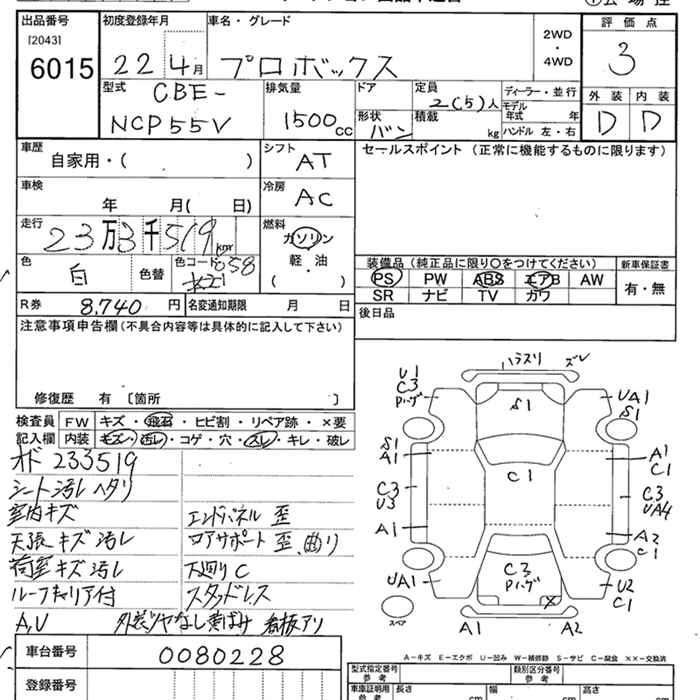 出品番号
[2043]
6015
初度登録年月
22 4月
車名・グレード
プロボックス
2WD
・
4WD
評価点
3
外装 内装
D D
型式
CBE-
NCP55V
排気量
1500cc
ドア
形状
バン
定員
2(5)人
積載
kg
ディーラー・並行
モデル
年式 年
ハンドル 左・右
車歴
自家用・( )
シフト
AT
セールスポイント (正常に機能するものに限ります)
車検
年 月( 日)
冷房
AC
走行
23万3千519km
燃料
ガソリン
軽・油
( )
色
白
色替
色コード 058
R券 8,740円
名変通知期限 月 日
装備品(純正品に限り○をつけてください)
PS PW ABS エアB AW
SR ナビ TV カワ
新車保証書
有・無
後日品
注意事項申告欄(不具合内容等は具体的に記入して下さい)
修復歴 有 〔箇所 〕
検査員
記入欄
FW キズ・飛石・ヒビ割・リペア跡・×要
内装 キズ・汚レ・コゲ・穴・スレ・キレ・破レ
オド 233519
シート汚レ ヘタリ
室内キズ
天張キズ汚レ
荷室キズ汚レ
ルーフキャリア付
A,U 外装ツヤなし黄ばみ 看板アリ
エンドパネル 歪
ロアサポート 歪、曲り
下廻りC
スタッドレス
ハラスリ ズレ
U1
C3
Pハゲ
S1
UA1
S1
S1
A1
C1
A1
C1
C3
U3
C3
UA4
A1
A2
C1
UA1
C3
Pハゲ
U2
C1
スペア
A1 A2
A-キズ E-エクボ U-凹み W-補修跡 S-サビ C-腐食 ××-交換済
車台番号 0080228
登録番号
型式指定番号
参考
類別区分番号
参考
車庫証明用
参考
長さ cm
幅 cm
高さ cm